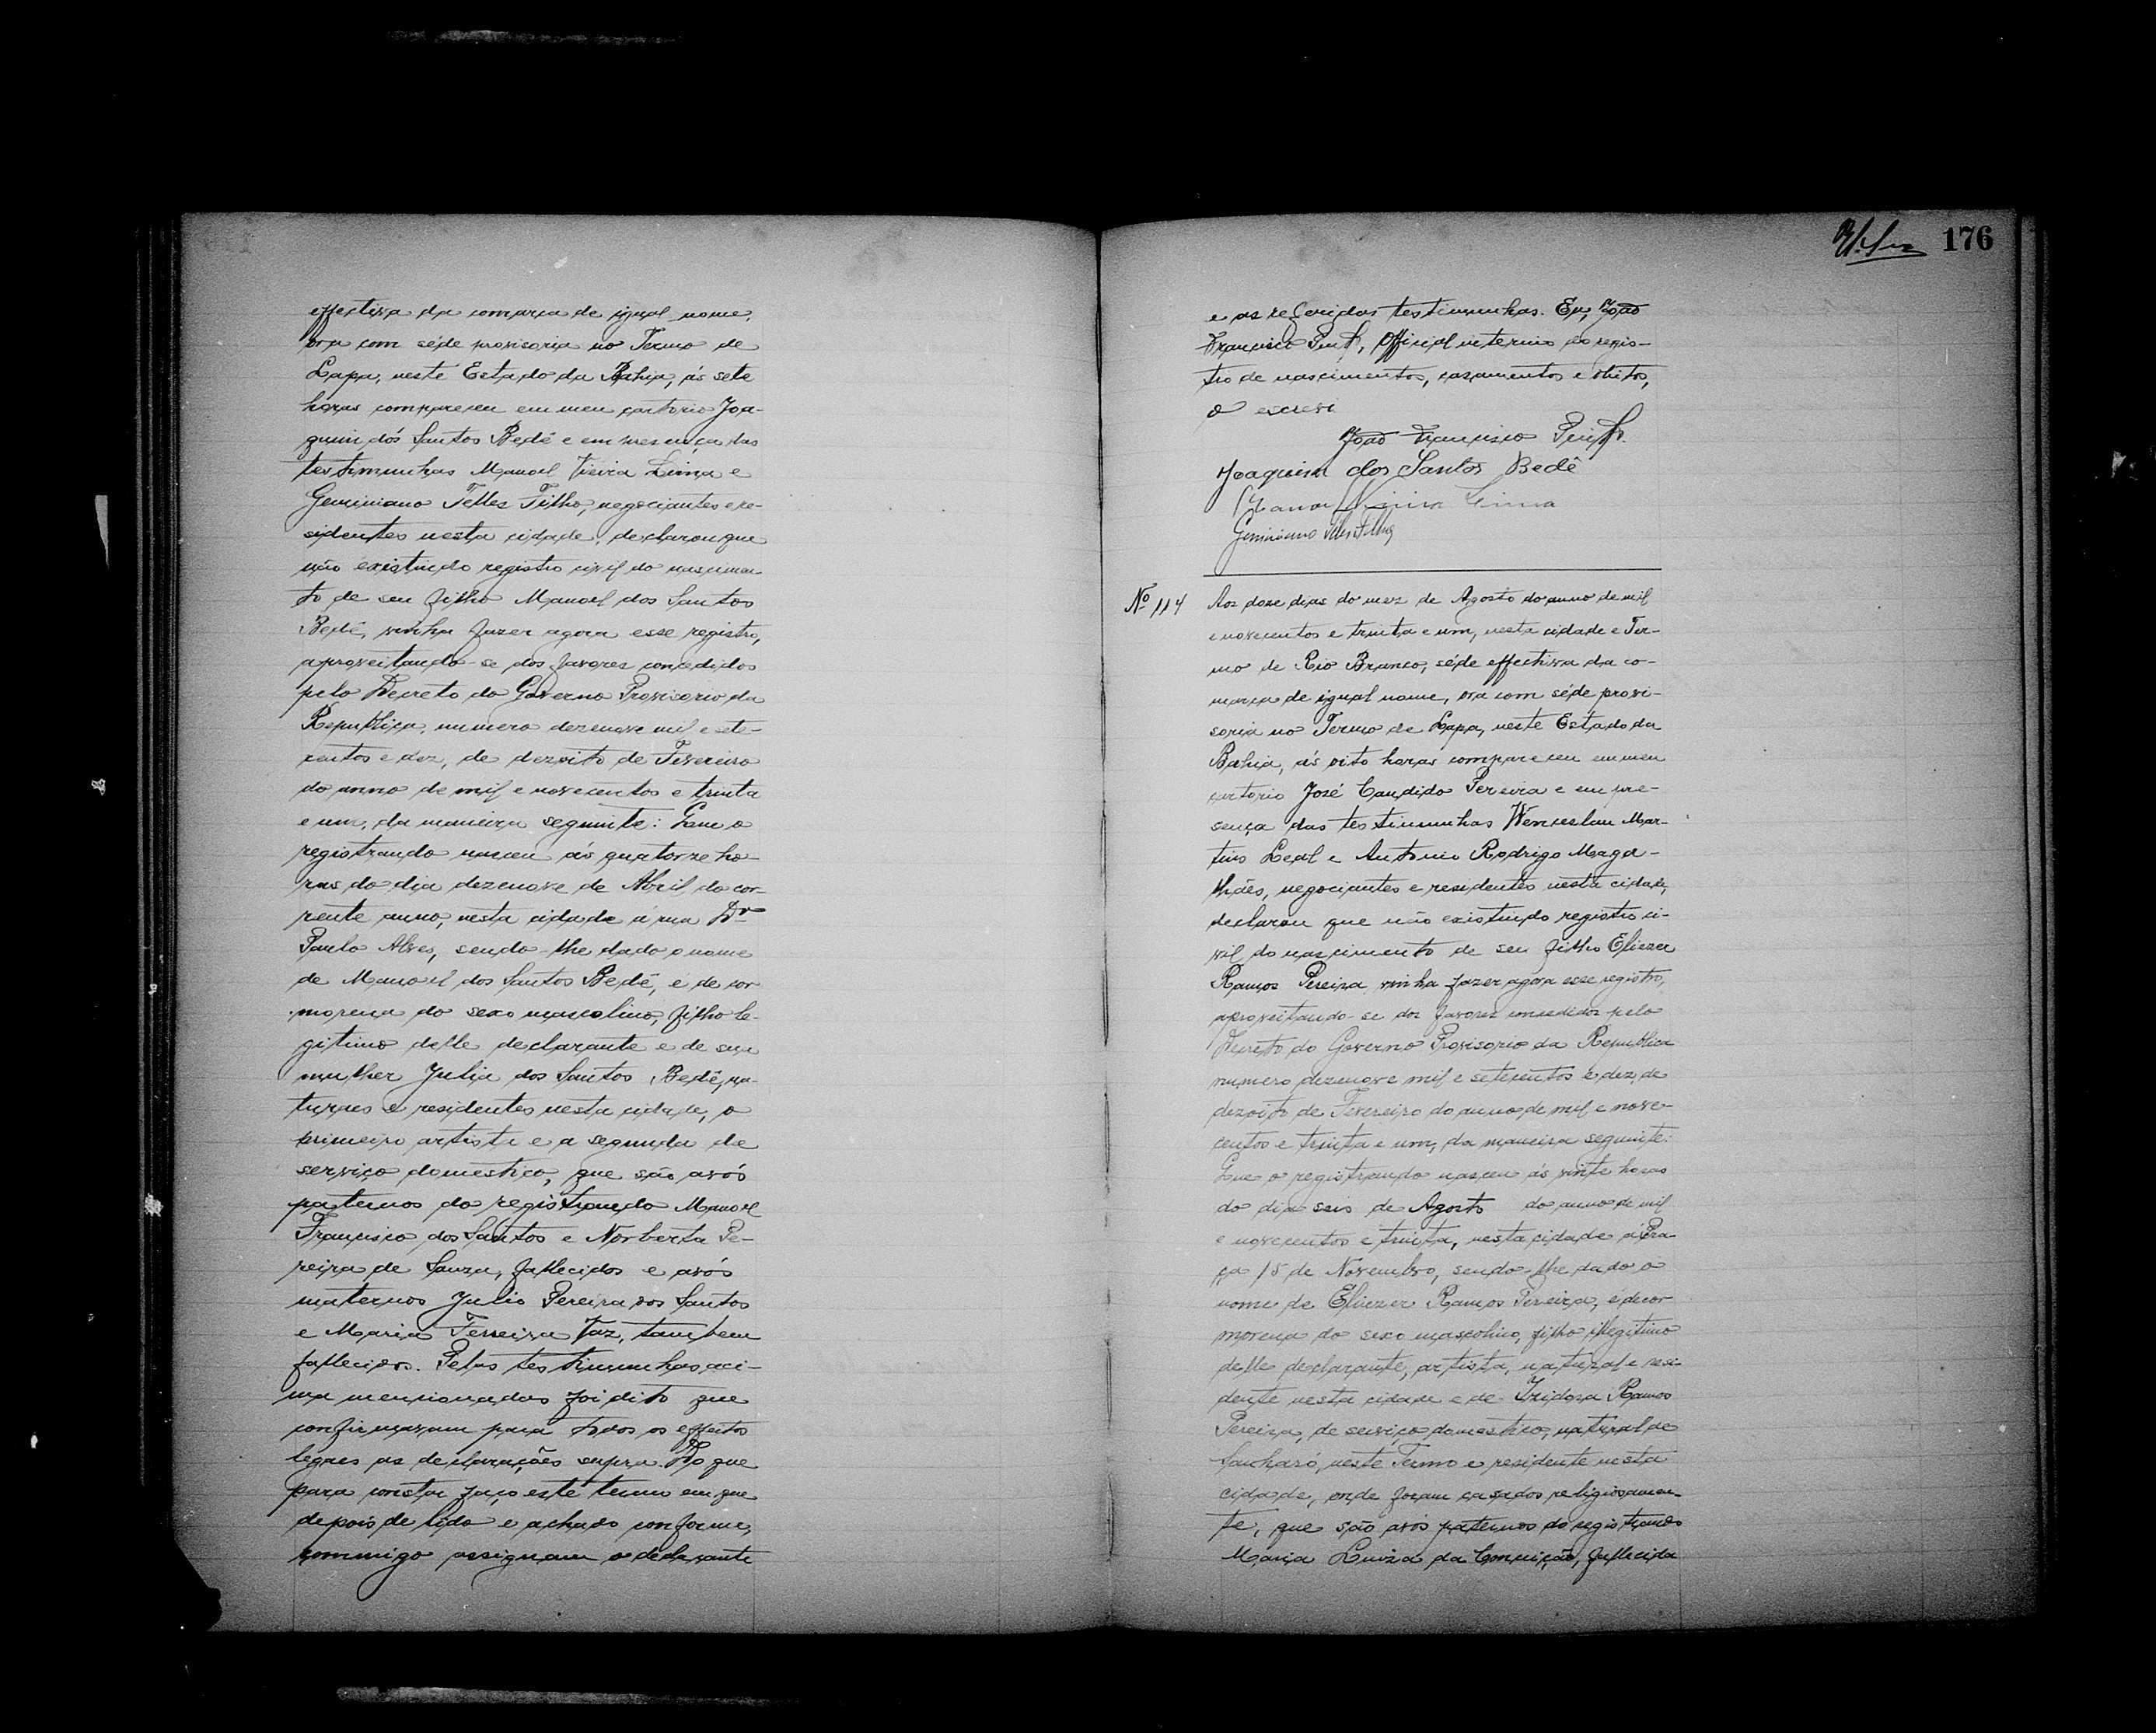 effectiva da comarca de igual nome,
ora com séde provisoria no Termo de
Lapa, neste Estado da Bahia, ás sete
horas compareceu em meu cartorio Joa-
quim dos Santos Bedê e em presença das
testimunhas Manoel Vieira Lima e
Geminiano Telles Filho, negociantes e re-
sidentes nesta cidade, declarou que
não existindo registro civil do nascimen
to de seu filho Manoel dos Santos
Bedê, vinha fazer agora esse registro,
aproveitando-se dos favores concedidos
pelo Decreto do Governo Provisorio da
Republica, numero dezenove mil e sete-
centos e dez, de dezoito de Fevereiro
do anno de mil e novecentos e trinta
e um, da maneira seguinte: Que o
registrando nasceu ás quatorze ho-
ras do dia dezenove de Abril do cor-
rente anno, nesta cidade á rua Dr
Paulo Alves, sendo-lhe dado o nome
de Manoel dos Santos Bedê, é de cor
morena do sexo masculino, filho le-
gitimo delle declarante e de sua
mulher Julia dos Santos Bedê, na-
turaes e residentes nesta cidade, o
primeiro artista e a segunda de
serviço domestico, que são avós
paternos do registrando Manoel
Francisco dos Santos e Norberta Pe-
reira de Souza, fallecidos e avós
maternos Julio Pereira dos Santos
e Maria Ferreira Vaz, tambem
fallecidos. Pelas testimunhas aci-
ma mencionadas foi dito que
confirmavam para todos os effeitos
legaes as declarações supra. Do que
para constar faço este termo em que
depois de lido e achado conforme,
commigo assignam o declarante
176
e as referidas testimunhas. Eu, João
Francisco, Official interino do regis-
tro de nascimentos, casamentos e obitos,
o escrevi
João Francisco
Joaquim dos Santos Bedê
Manoel Vieira Lima
Geminiano Telles Filho
Nº 114
Aos doze dias do mez de Agosto do anno de mil
e novecentos e trinta e um, nesta cidade e Ter-
mo de Rio Branco, séde effectiva da co-
marca de igual nome, ora com séde provi-
soria no Termo de Lapa, neste Estado da
Bahia, ás oito horas compareceu em meu
cartorio José Candido Pereira e em pre-
sença das testimunhas Wenceslau Mar-
tins Leal e Antonio Rodrigo Maga-
lhães, negociantes e residentes nesta cidade,
declarou que não existindo registro ci-
vil do nascimento de seu filho Eliezer
Ramos Pereira, vinha fazer agora esse registro,
aproveitando-se dos favores concedidos pelo
Decreto do Governo Provisorio da Republica
numero dezenove mil e setecentos e dez, de
dezoito de Fevereiro do anno de mil e nove-
centos e trinta e um, da maneira seguinte:
Que o registrando nasceu ás vinte horas
do dia seis de Agosto do anno de mil
e novecentos e trinta, nesta cidade á Pra-
ça 15 de Novembro, sendo-lhe dado o
nome de Eliezer Ramos Pereira, é de cor
morena do sexo masculino, filho illegitimo
delle declarante, artista, natural e resi-
dente nesta cidade e de Ramos
Pereira, de serviço domestico, natural de
neste Termo e residente nesta
cidade, onde foram casados religiosamen-
te, que são avós paternos do registrando
Maria Luiza da Conceição, fallecida